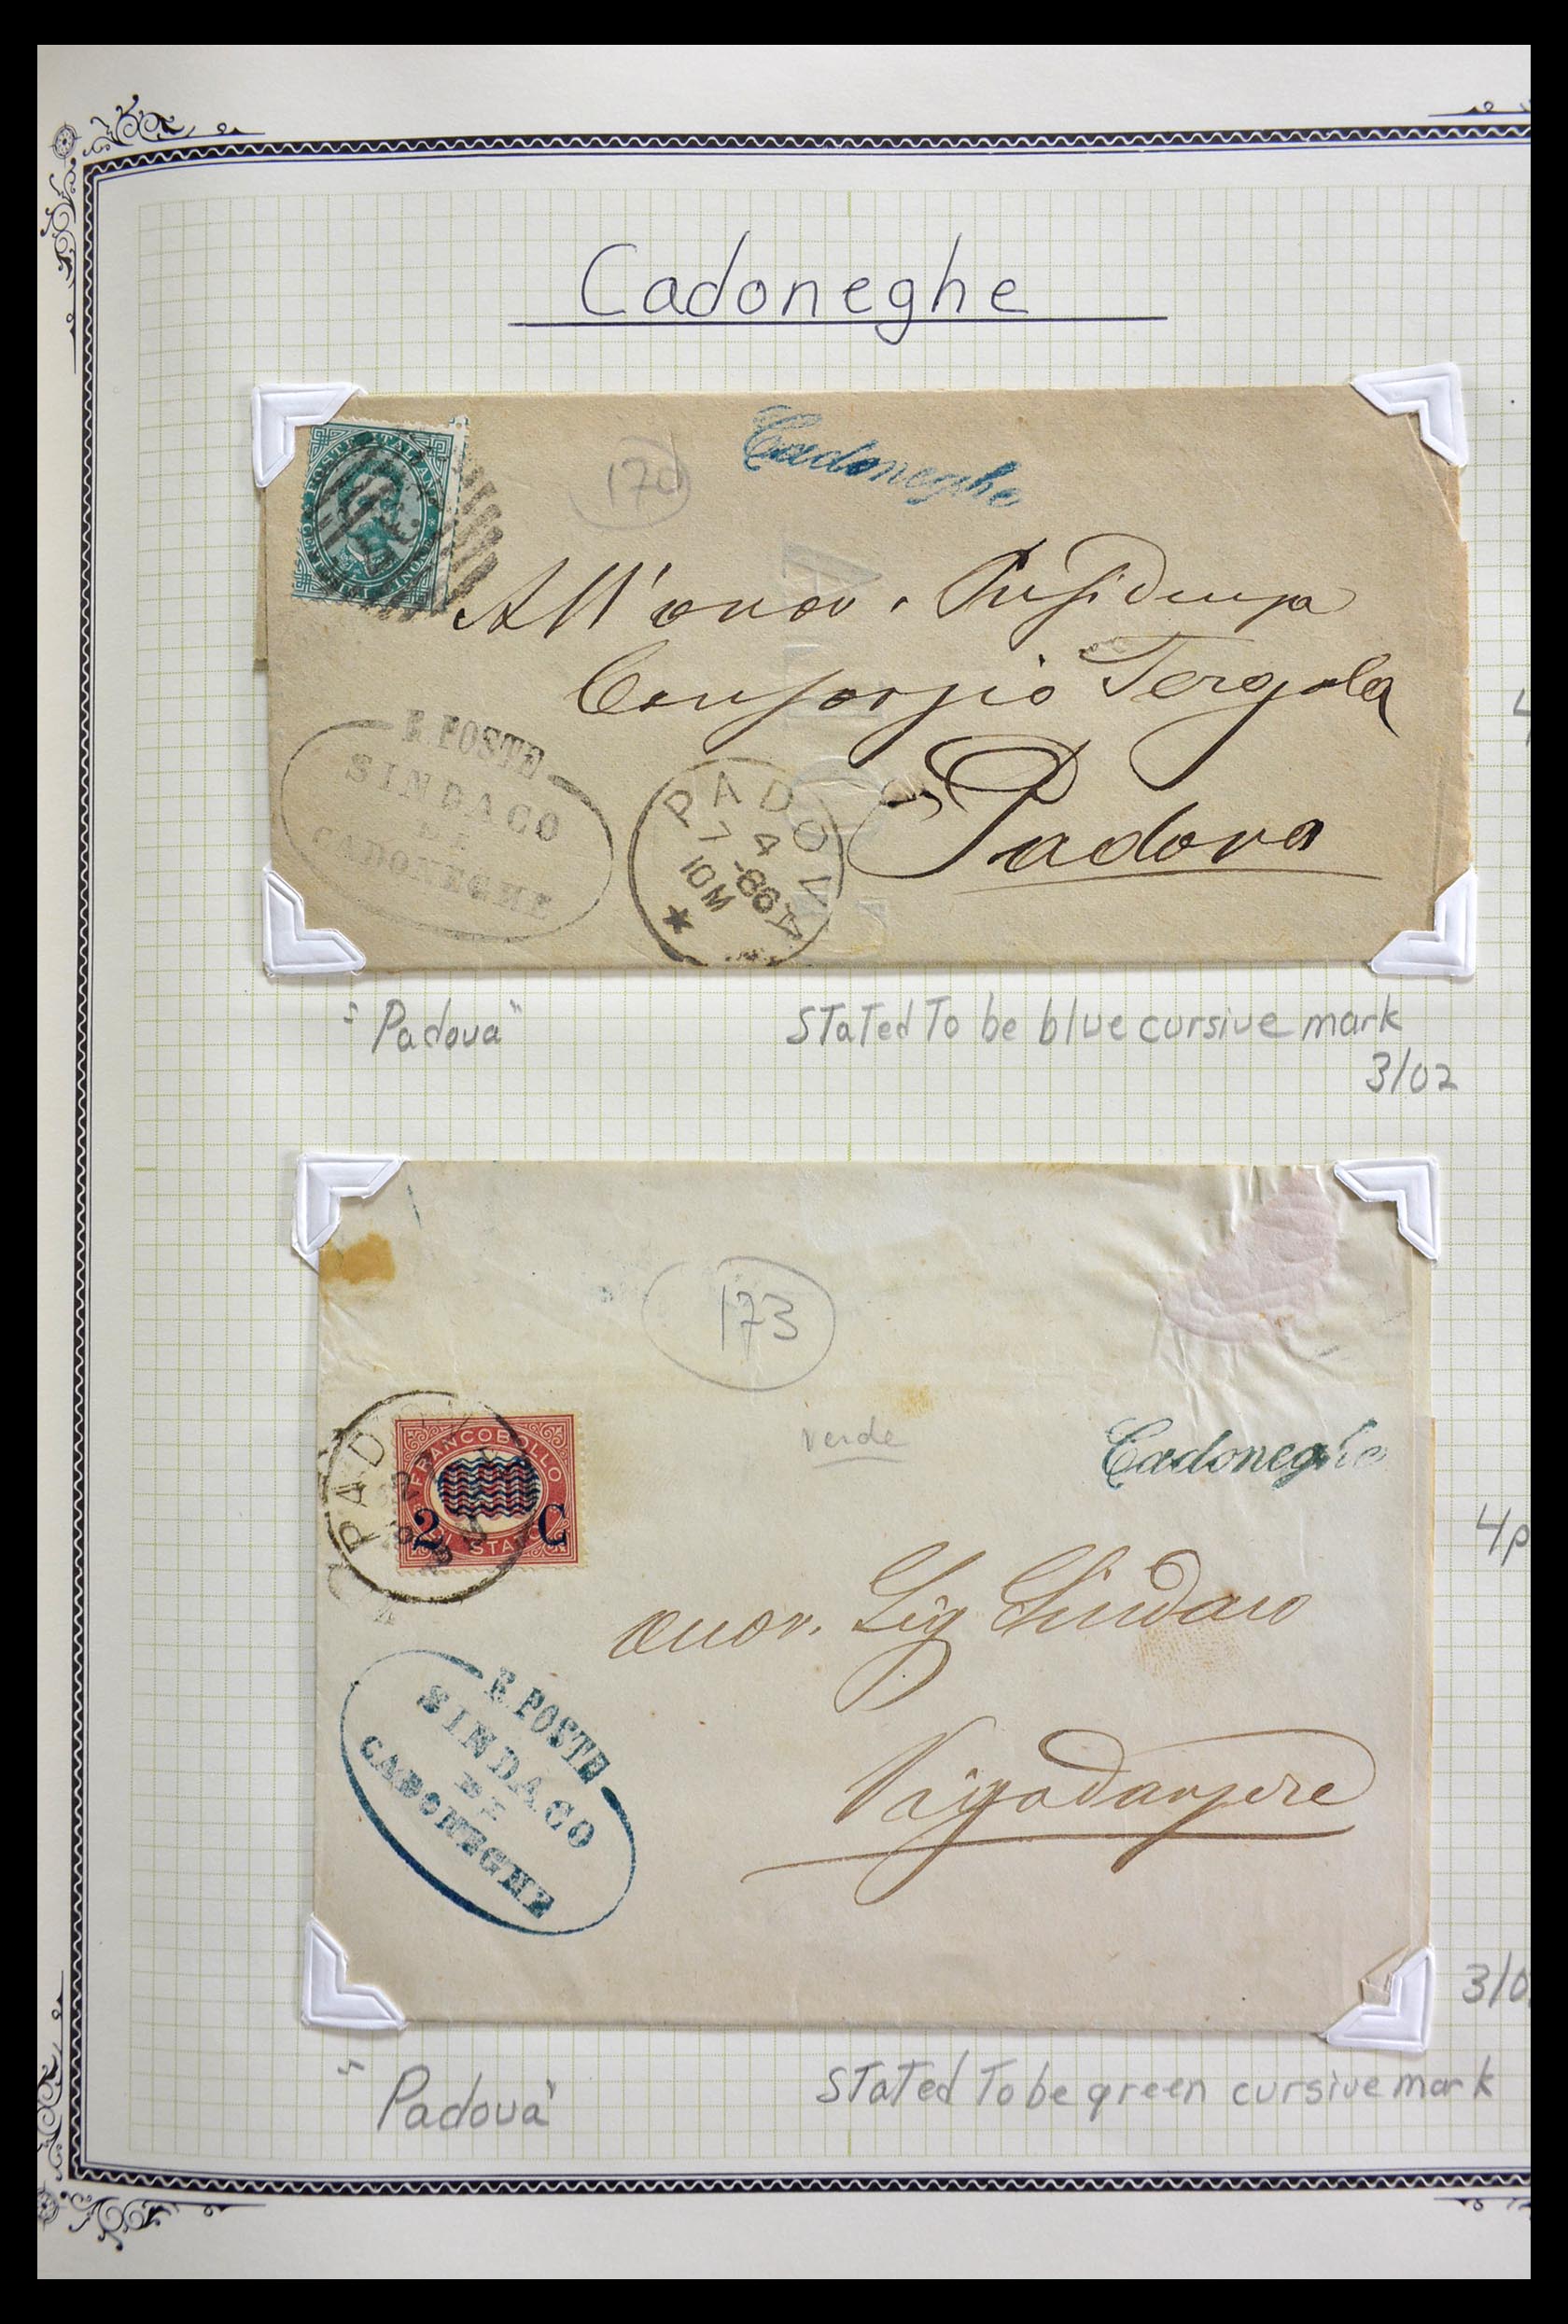 Cadoneghe
170
Cadoneghe
POSTE ITALIANE
All'onor. Presidenza
Consorzio Tergola
Padova
R. POSTE
SINDACO
DI
CADONEGHE
PADOVA
7 4 -86
10M
"Padova"
Stated To be blue cursive mark
3/02
173
verde
Cadoneghe
PADOVA
FRANCOBOLLO
2 C
DI STATO
onor. Sig Sindaco
Vigodarzere
R. POSTE
SINDACO
DI
CADONEGHE
4p
3/0
"Padova"
Stated To be green cursive mark